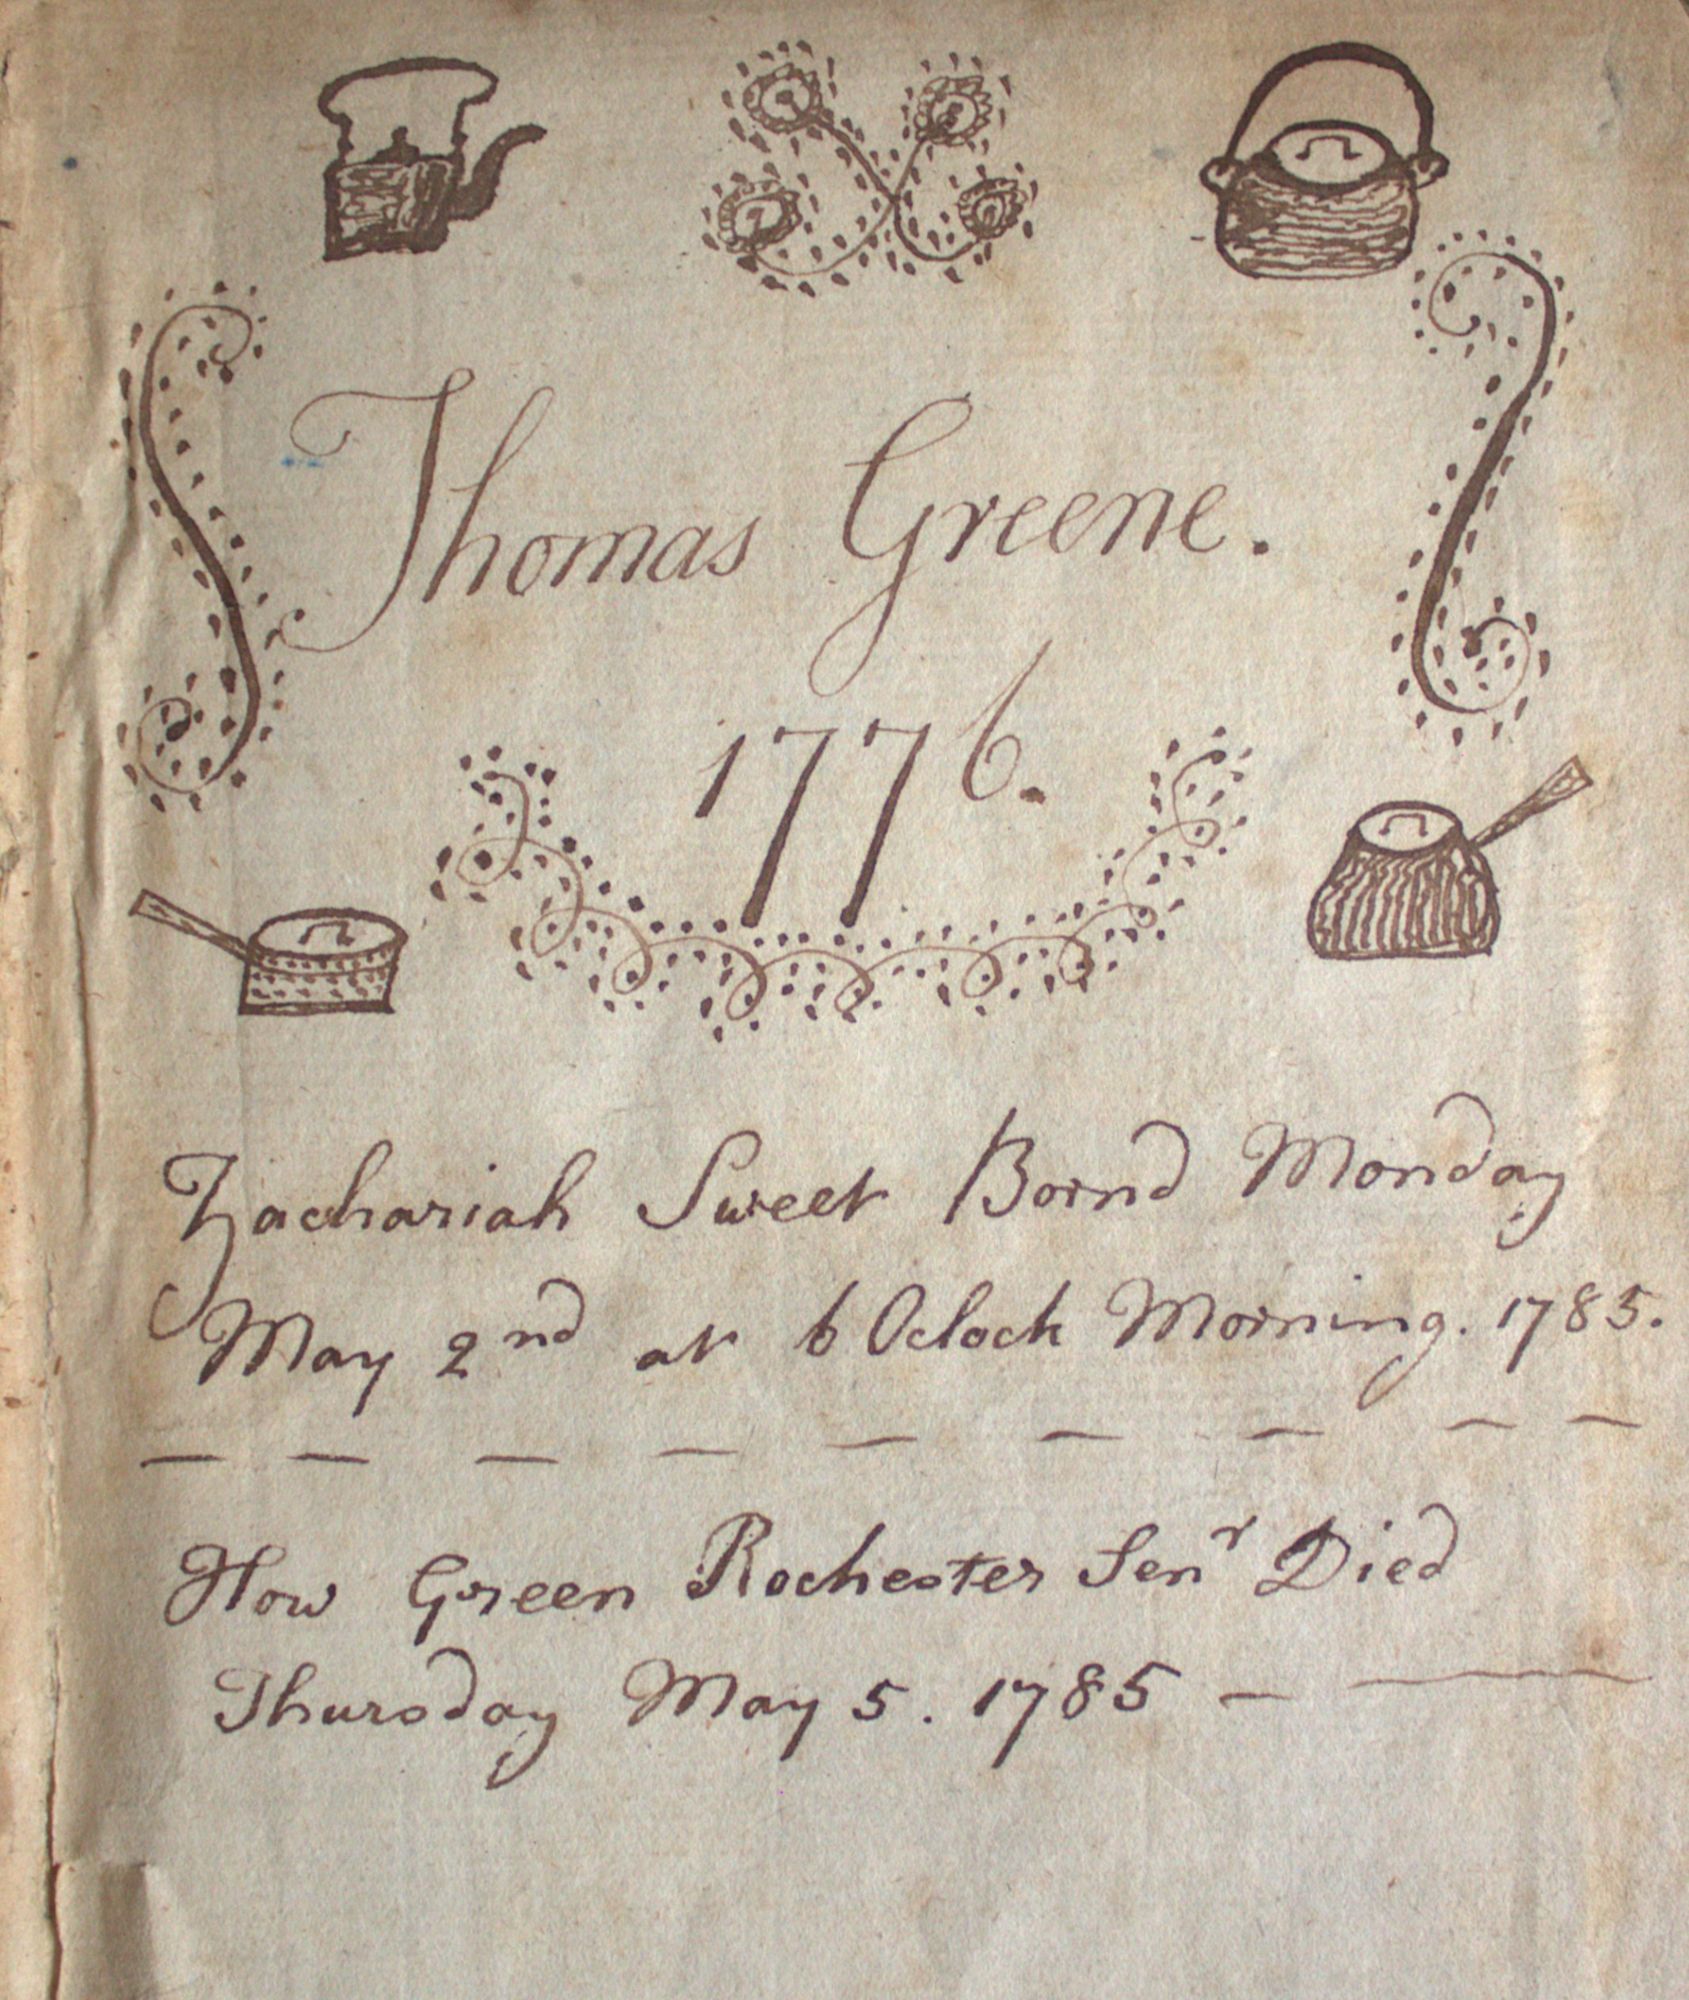 Thomas Greene.
1776.
Zachariah Sweet Bornd Monday
May 2nd at 6 Oclock Morning. 1785.
How Green Rochester Senr Died
Thursday May 5. 1785